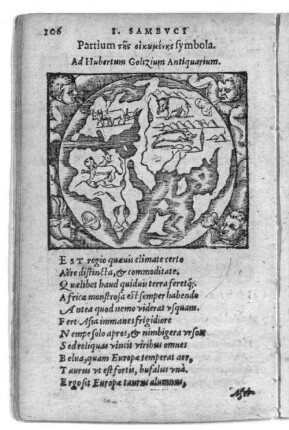 106 I. SAMBVCI
Partium τῆς οἰκουμένης symbola.
Ad Hubertum Goltzium Antiquarium.
EST regio quæuis climate certo
Aëre distincta, & commoditate,
Quælibet haud quiduis terra feretq́;.
Africa monstrosa est semper habendo
Antea quod nemo viderat vsquam.
Fert Asia immanes frigidiore
Nempe solo apros, & nimbigera vrsos
Sed reliquas vincit viribus omnes
Belua, quam Europæ temperat aer,
Taurus vt est fortis, bufalus vnà.
Ergo sit Europæ taurus alumnus,